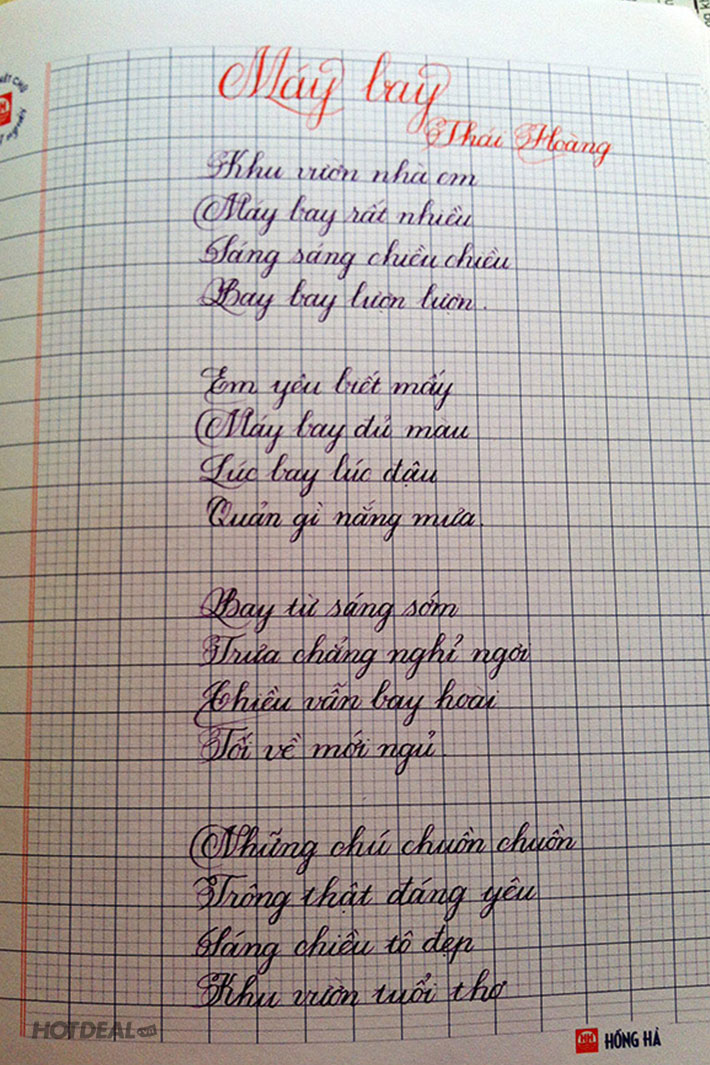 Máy bay
Thái Hoàng
Khu vườn nhà em
Máy bay rất nhiều
Sáng sáng chiều chiều
Bay bay lượn lượn.
Em yêu biết mấy
Máy bay đủ màu
Lúc bay lúc đậu
Quản gì nắng mưa.
Bay từ sáng sớm
Trưa chẳng nghỉ ngơi
Chiều vẫn bay hoài
Tối về mới ngủ.
Những chú chuồn chuồn
Trông thật đáng yêu
Sáng chiều tô đẹp
Khu vườn tuổi thơ
HOTDEAL.vn
HỒNG HÀ